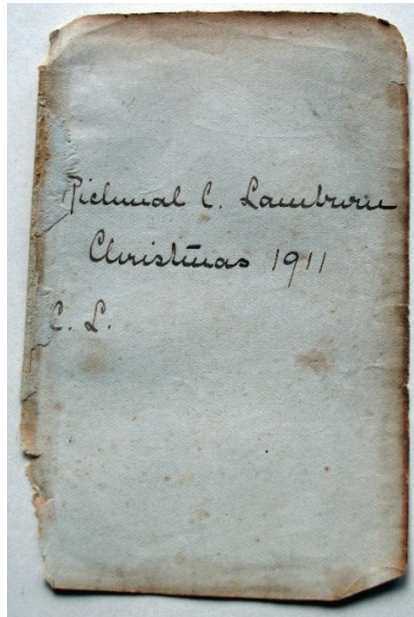 Richmal C. Lamburn
Christmas 1911
C. L.